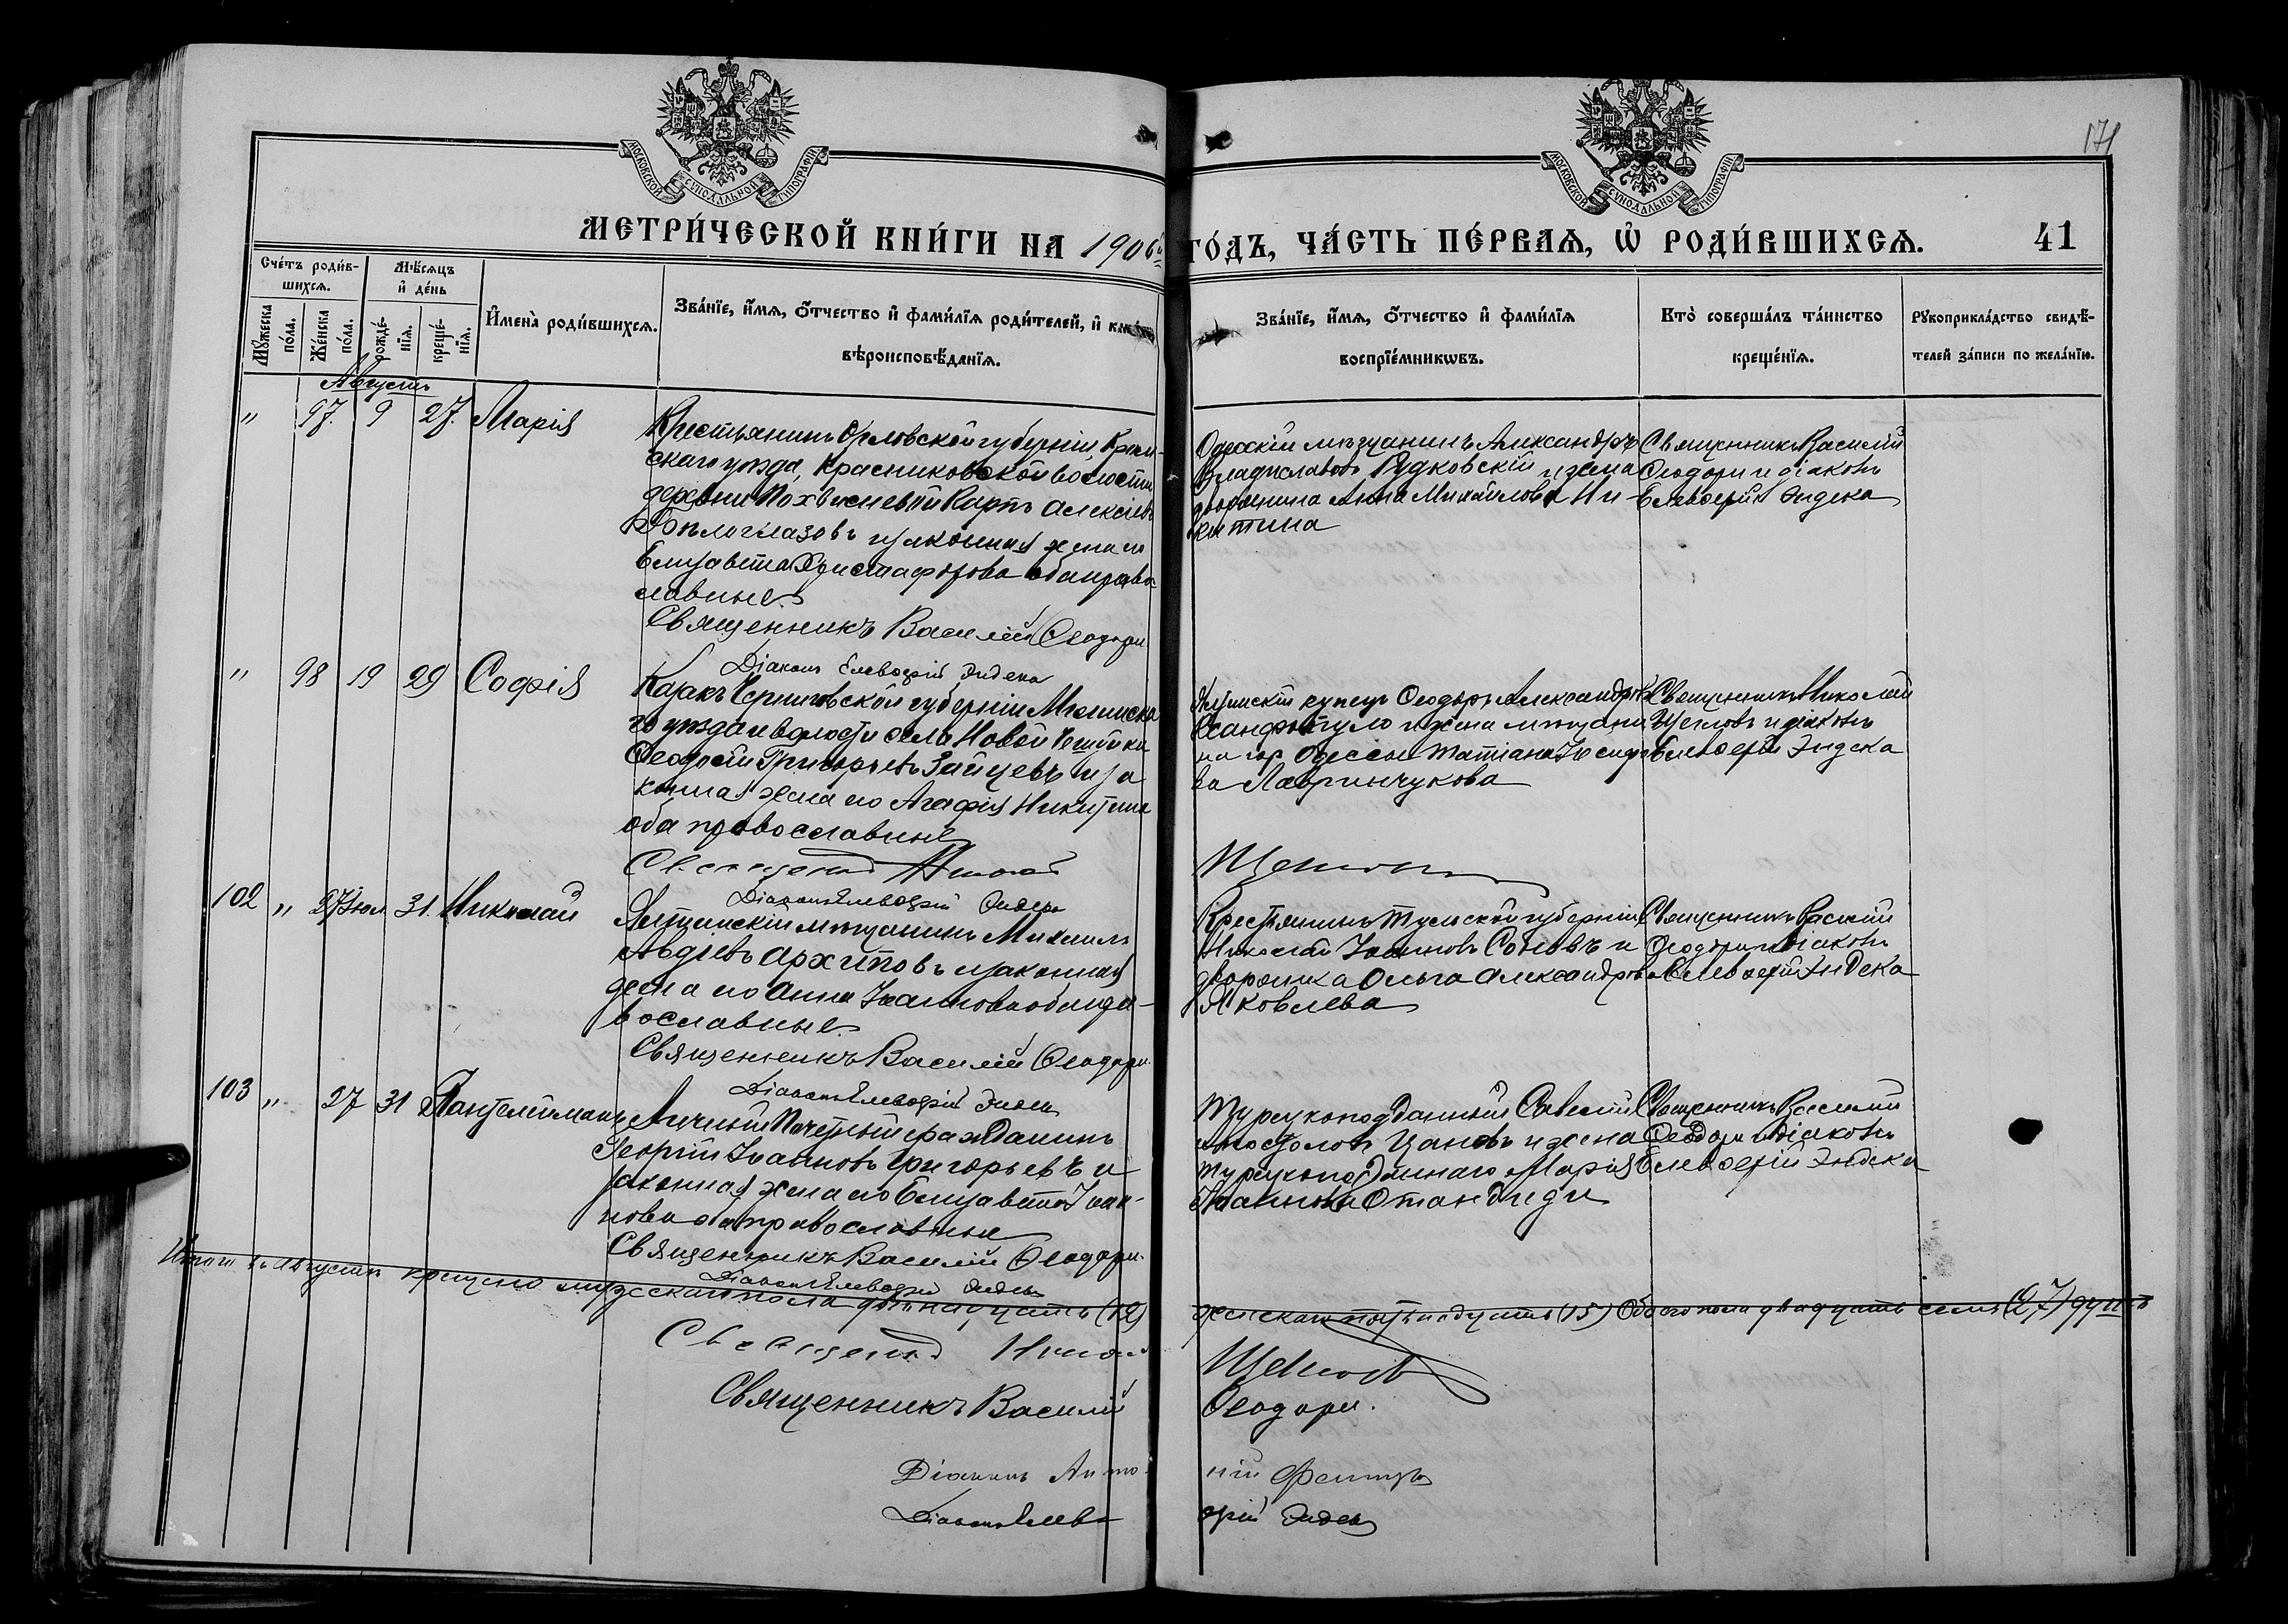 171
МОСКОВСКОЙ СѴНОДАЛЬНОЙ ТИПОГРАФІИ
МОСКОВСКОЙ СѴНОДАЛЬНОЙ ТИПОГРАФІИ
МЕТРИ́ЧЕСКОЙ КНИ́ГИ НА 1906й ГО́ДЪ, ЧА́СТЬ ПЕ́РВАѦ, Ѡ҆ РОДИ́ВШИХСѦ. 41
Сче́тъ роди́в-
шихсѧ.
Мꙋ́жеска по́ла.
Же́нска по́ла.
Мѣ́сѧцъ
и҆ де́нь
рожде́-нїѧ.
креще́-нїѧ.
И҆мена̀ роди́вшихсѧ.
Зва́нїе, и҆́мѧ, ѻ҆́тчество и҆ фами́лїѧ роди́телей, и҆ как
вѣроисповѣ́данїѧ.
Зва́нїе, и҆́мѧ, ѻ҆́тчество и҆ фами́лїѧ
воспрїе́мникѡвъ.
Кто̀ соверша́лъ та́инство
креще́нїѧ.
Рꙋкоприкла́дство свидѣ́-
телей за́писи по жела́нїю.
Августъ
" 97. 9 27. Марія
Крестьянинъ Орловской губерніи, Кром-
скаго уѣзда, Красниковской волости
деревни Похвисневой Карпъ Алексіевъ
Бѣлоглазовъ и законная жена его
Елизавета Христофорова оба право-
славные.
Священникъ Василій Ѳеодори
Діаконъ Елевѳерій Эндека
Одесскій мѣщанинъ Александръ
Владиславовъ Рудковскій и жена
дворянина Анна Михайлова Ни-
китина
Священникъ Василій
Ѳеодори и діаконъ
Елевѳерій Эндека
" 98 19 29 Софія
Казакъ Черниговской губерніи Мглинска
го уѣзда и волости села Новой
Ѳеодосій Григорьевъ Зайцевъ и за
конная жена его Агафія Никитина
оба православные
Священникъ Николай Щегловъ
Діаконъ Елевѳерій Эндека
Ялтинскій купецъ Ѳеодоръ Александровъ
Ксандопуло и жена мѣщани
на гор Одессы Татіана Іосифо
ва Лавринчукова
Священникъ Николай
Щегловъ и діаконъ
Елевѳерій Эндека
102 " 27 Іюл 31. Николай
Ялтинскій мѣщанинъ Михаилъ
Авдіевъ Архиповъ и законная
жена его Анна Іоаннова оба пра-
вославные.
Священникъ Василій Ѳеодори.
Діаконъ Елевѳерій Эндека
Крестьянинъ Тульской губерніи
Николай Іоанновъ Соповъ и
дворянка Ольга Александрова
Яковлева
Священникъ Василій
Ѳеодори и діаконъ
Елевѳерій Эндека
103 " 27 31 Пантелеймонъ
Личный Почетный гражданинъ
Георгій Іоанновъ Григорьевъ и
законная жена его Елизавета Іоан-
нова оба православные
Священникъ Василій Ѳеодори.
Діаконъ Елевѳерій Эндека
Турецкоподданный Савелій
Апостоловъ Цановъ и жена
турецкоподданнаго Марія
Іоаннова
Священникъ Василій
Ѳеодори и діаконъ
Елевѳерій Эндека
Итого въ Августѣ крещено мужескаго пола двѣнадцать (12) женскаго пятьнадцать (15) Обоего пола двадцать семь (27) душъ
Священникъ Николай Щегловъ
Священникъ Василій Ѳеодори.
Діаконъ Анто-ній
Діаконъ Елевѳерій Эндека